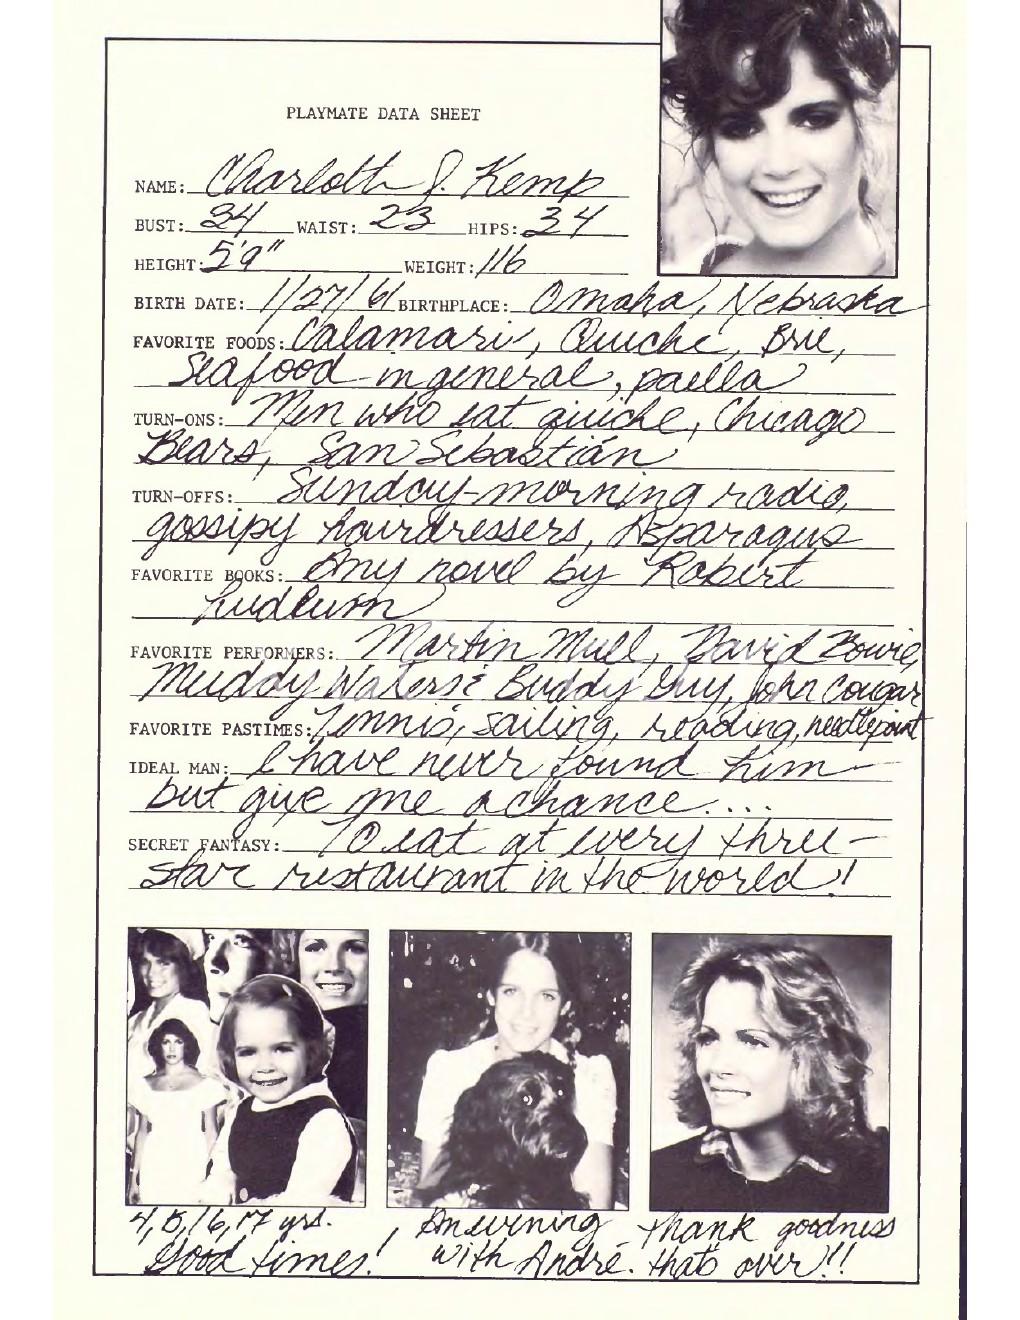 PLAYMATE DATA SHEET
NAME: Charlotte J. Kemp
BUST: 34 WAIST: 23 HIPS: 34
HEIGHT: 5'9" WEIGHT: 116
BIRTH DATE: 1/27/61 BIRTHPLACE: Omaha, Nebraska
FAVORITE FOODS: Calamari, Quiche, Brie,
Seafood in general, paella
TURN-ONS: Men who eat quiche, Chicago
Bears, San Sebastián
TURN-OFFS: Sunday-morning radio,
gossipy hairdressers, Asparagus
FAVORITE BOOKS: Any novel by Robert
Ludlum
FAVORITE PERFORMERS: Martin Mull, David Bowie,
Muddy Waters & Buddy Guy, John Cougar
FAVORITE PASTIMES: Tennis, sailing, reading, needlepoint
IDEAL MAN: I have never found him—
but give me a chance....
SECRET FANTASY: To eat at every three-
star restaurant in the world!
4, 15, 16, 17 yrs.
Good times!
An evening
with André.
Thank goodness
that's over!!